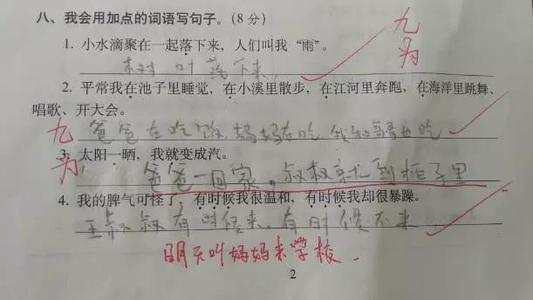 八、我会用加点的词语写句子。(8 分)
1. 小水滴聚在一起落下来，人们叫我“雨”。
树叶落下来
2. 平常我在池子里睡觉，在小溪里散步，在江河里奔跑，在海洋里跳舞、
唱歌、开大会。
爸爸在吃饭，妈妈在吃 我和哥哥也吃
3. 太阳一晒，我就变成汽。
爸爸一回家，叔叔就到柜子里
4. 我的脾气可怪了，有时候我很温和，有时候我却很暴躁。
王叔叔有时候来，有时候不来
明天叫妈妈来学校.
2
九
为
九
为